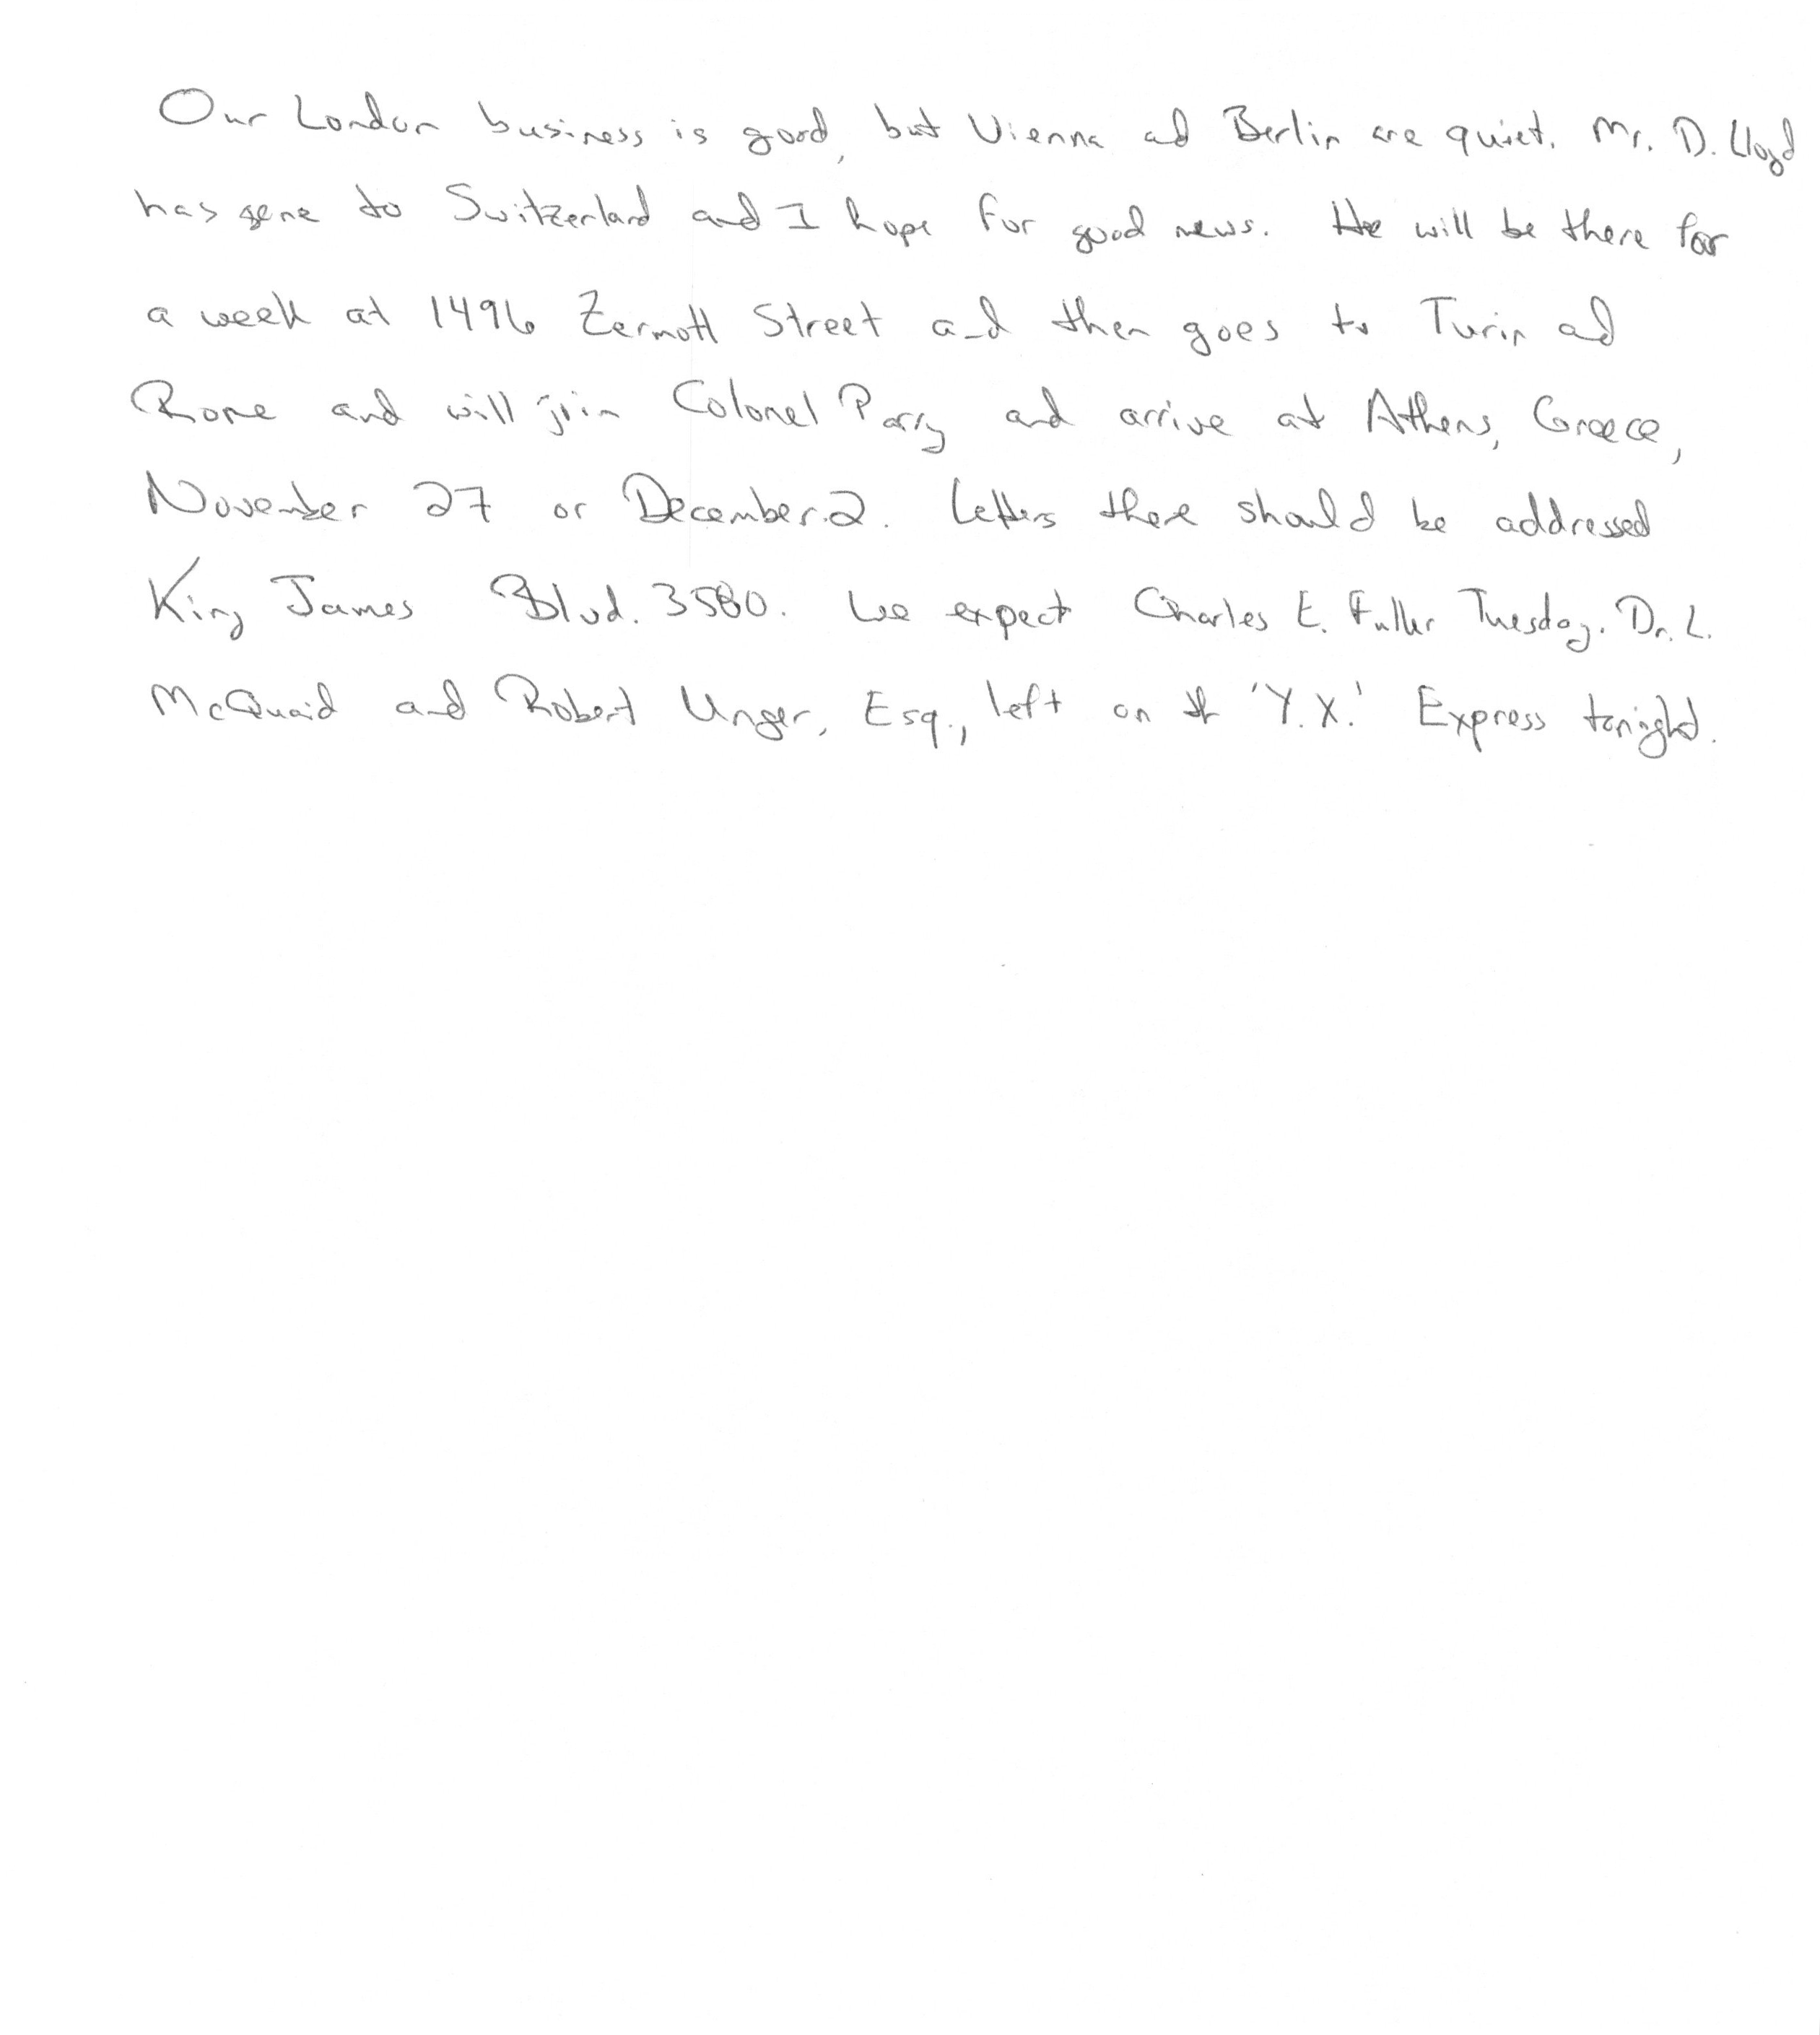 Our London business is good, but Vienna ad Berlin are quiet. Mr. D. Lloyd
has gone to Switzerland and I hope for good news. He will be there for
a week at 1496 Zermott Street and then goes to Turin ad
Rome and will join Colonel Parry and arrive at Athens, Greece,
November 27 or December.2. Letters there should be addressed
King James Blvd. 3580. We expect Charles E. Fuller Tuesday. Dr. L.
McQuaid and Robert Unger, Esq., left on th 'Y.X.' Express tonight.